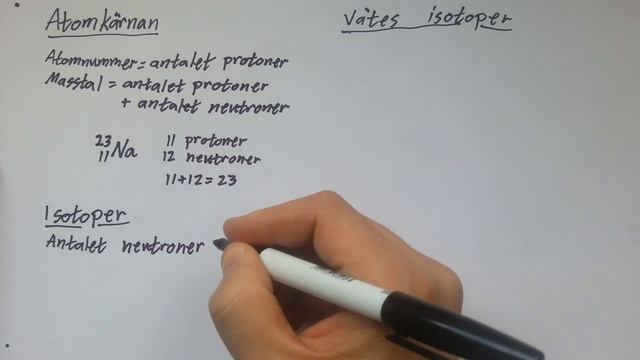 Atomkärnan
Atomnummer = antalet protoner
Masstal = antalet protoner
+ antalet neutroner
23
11 Na
11 protoner
12 neutroner
11+12=23
Isotoper
Antalet neutroner
Vätes isotoper